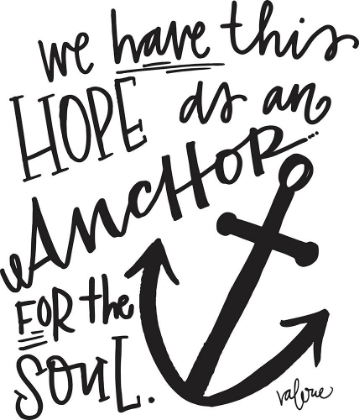 we have this
HOPE as an
ANCHOR...
FOR the
SOUL.
valerie